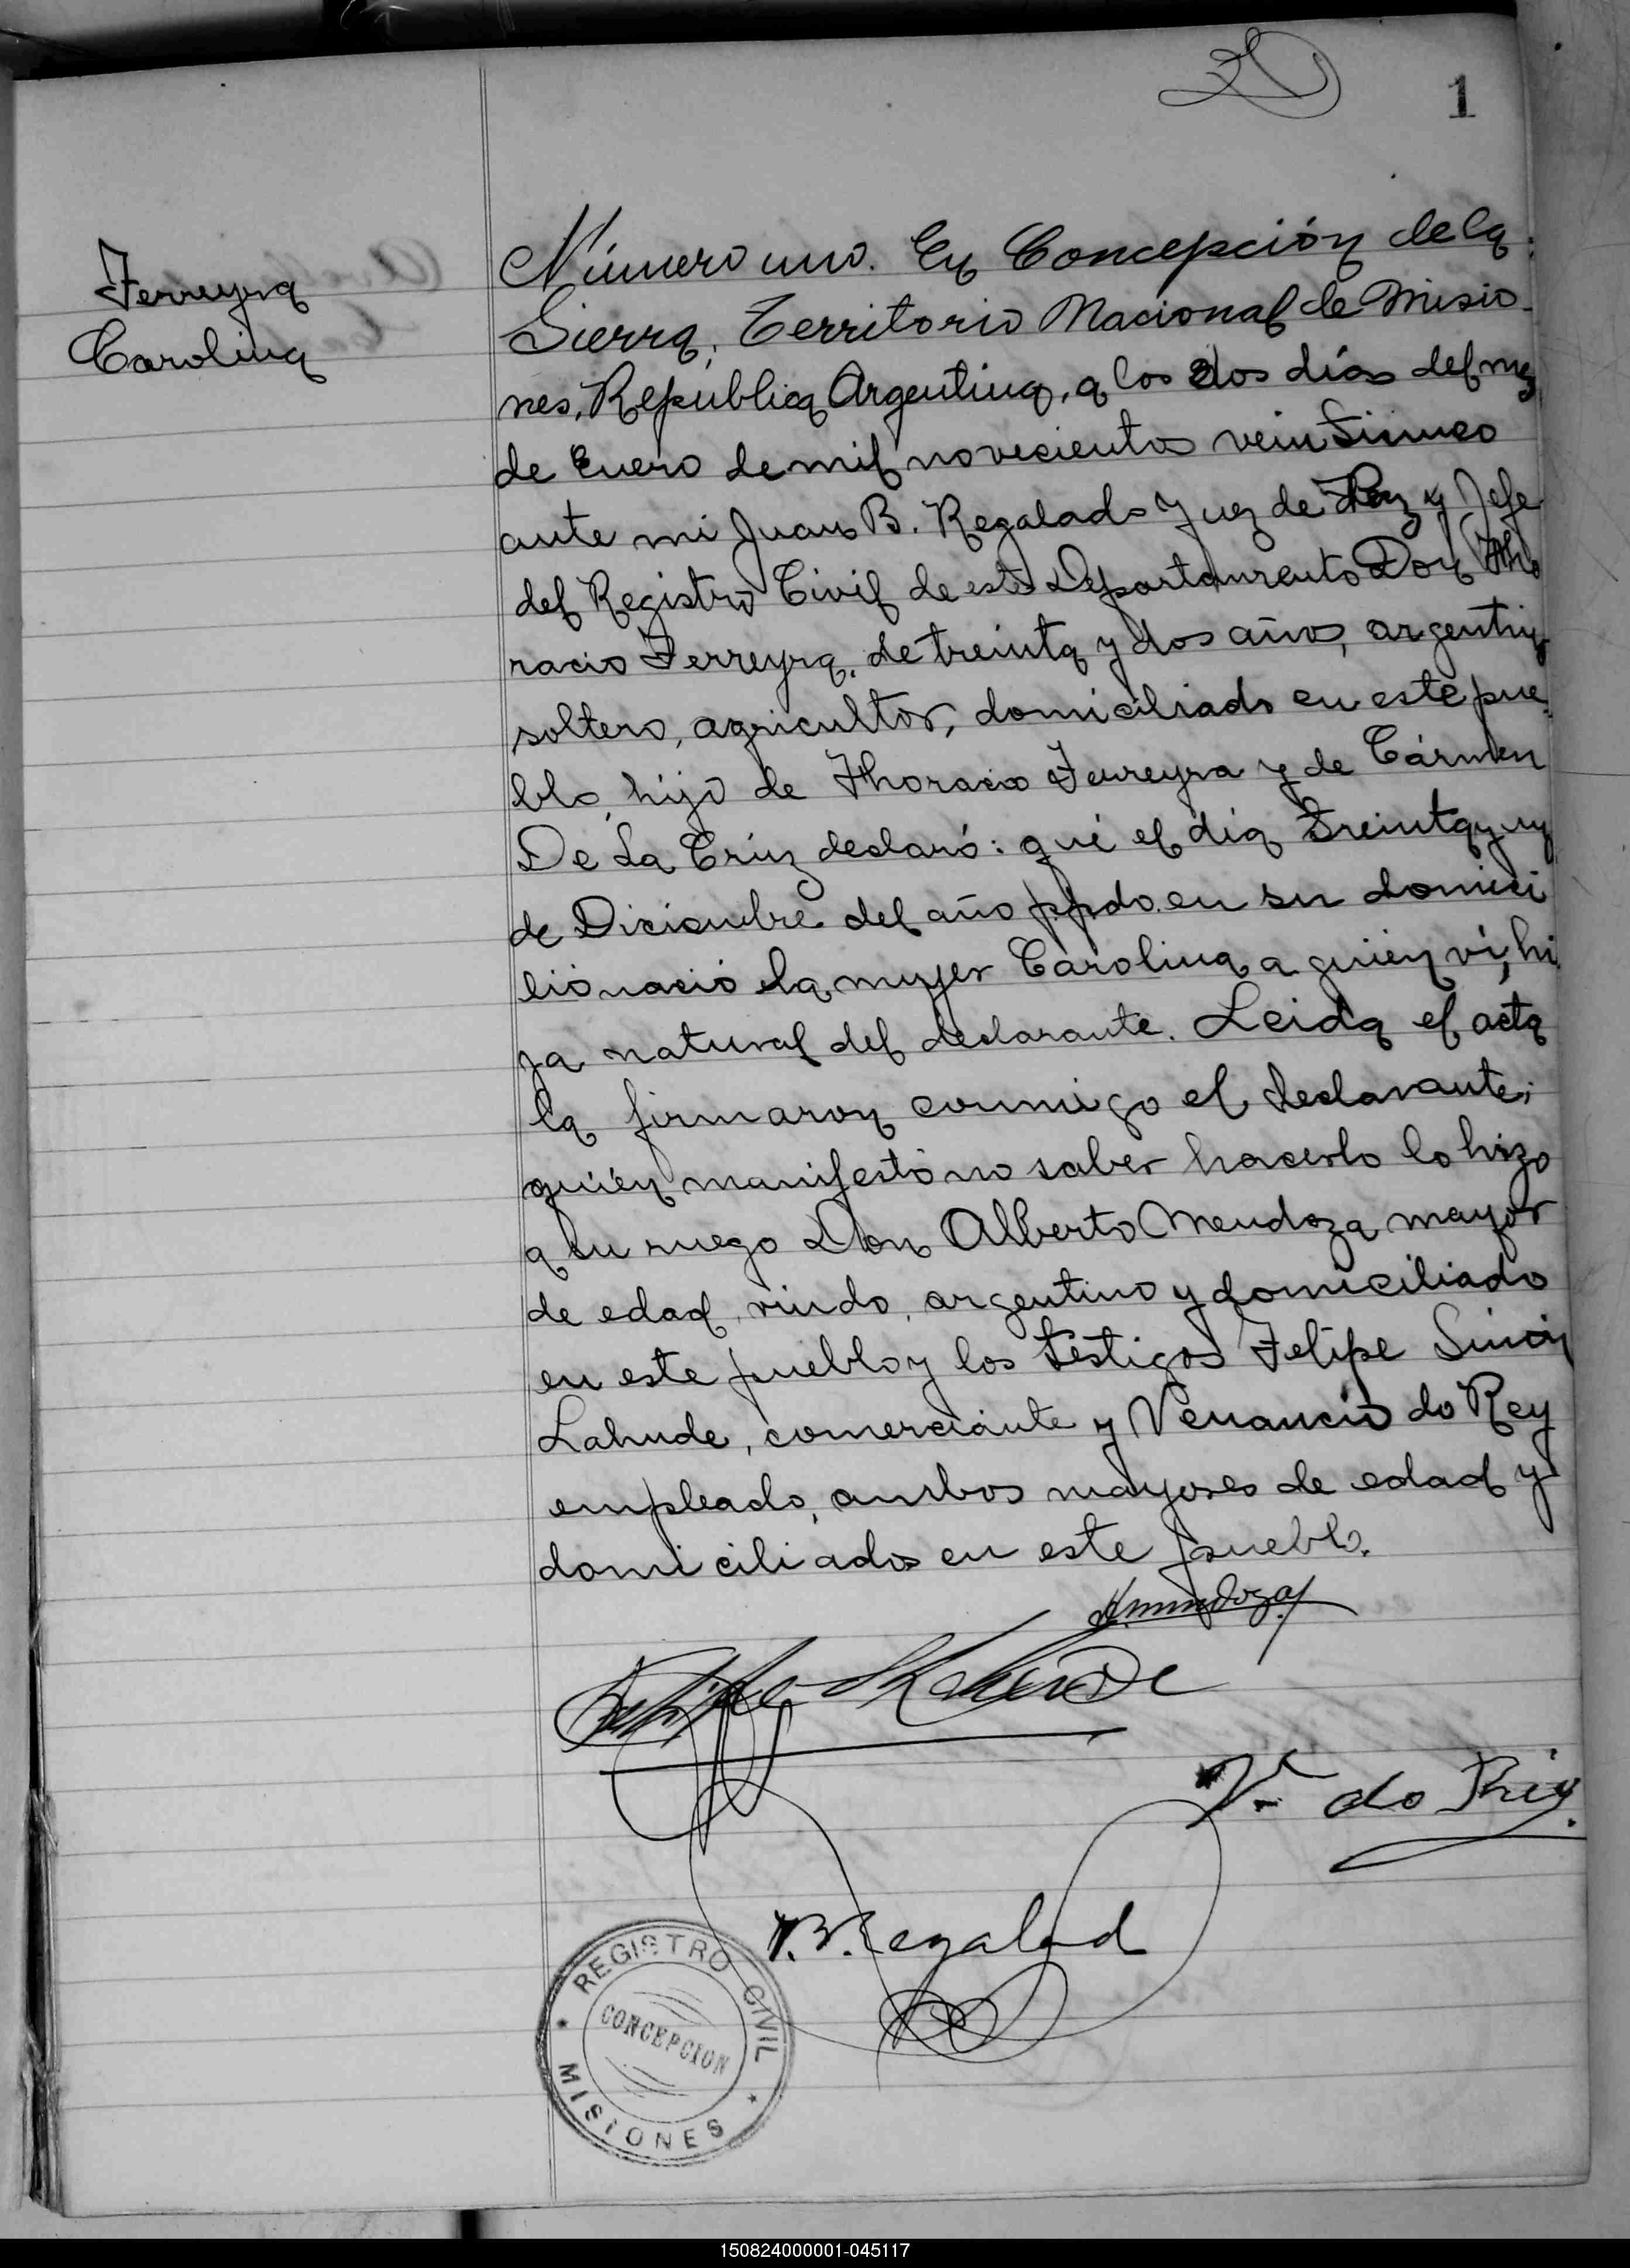 1
Ferreyra
Carolina
Número uno. En Concepción de la
Sierra, Territorio Nacional de Misio-
nes, República Argentina, a los dos días del mes
de Enero de mil novecientos veinticinco
ante mi Juan B. Regalado Juez de Paz y Jefe
del Registro Civil de este Departamento Don Tho
racio Ferreyra, de treinta y dos años, argentino
soltero, agricultor, domiciliado en este pue-
blo, hijo de Thoracio Ferreyra y de Cármen
De La Crúz declaró: qué el día treinta y un
de Diciembre del año ppdo. en su domici
lió nació la mujer Carolina a quién ví, hi
ja natural del declarante. Leida el acta
la firmaron conmigo el declarante;
quién manifestó no saber hacerlo lo hizo
a su ruego Don Alberto Mendoza mayor
de edad, viudo, argentino y domiciliado
en este pueblo y los testigos Felipe
Lahude, comerciante y Venancio do Rey
empleado, ambos mayores de edad y
domiciliados en este pueblo.
A. Mendoza
Felipe Lahude
V. do Rey.
J. B. Regalado
REGISTRO CIVIL
CONCEPCION
MISIONES
150824000001-045117